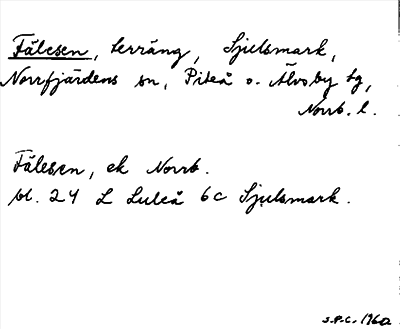 Fälesen, terräng, Sjulsmark,
Norrfjärdens sn, Piteå o. Älvsby tg,
Norrb. l.
Fälesen, ek Norrb.
bl. 24 L Luleå 6c Sjulsmark.
S.P.C. 1960